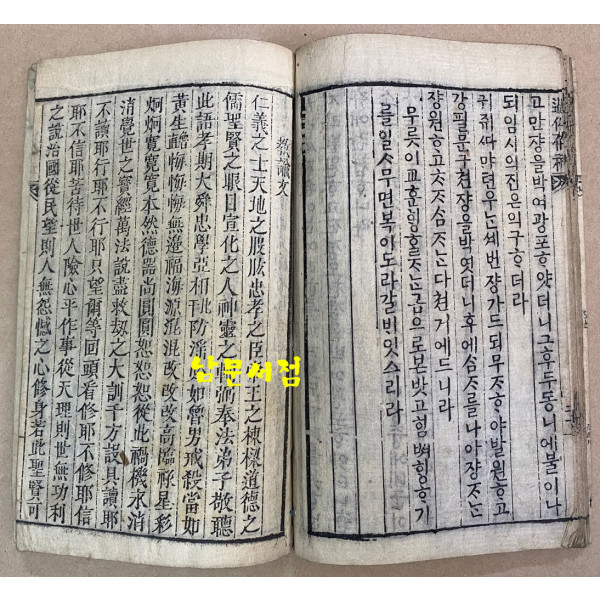 고만쟝을박여광포ᄒᆞ얏더니근후두동니에불이나
되임시의진은의구ᄒᆞ더라
귀쥐ᄯᅡ마련우ᄂᆞᆫ세번쟝가드되무ᄌᆞᄒᆞ야발원ᄒᆞ고
강필문구쳔쟝을박엿더니후에삼ᄌᆞ를나아쟝ᄌᆞᄂᆞᆫ
쟝원ᄒᆞ고ᄎᆞᄌᆞ삼ᄌᆞᄂᆞᆫ다쳔거에드니라
무릇이교훈ᄒᆡᆼᄒᆞᄌᆞᄂᆞᆫ급으로본밧고힘ᄡᅥᄒᆡᆼᄒᆞ기
를일ᄉᆞᆷ무면복이도라갈비잇스리라
敎諭文
仁義之士天地之股肱忠孝之臣王之棟樑道德之
儒聖賢之眼目宣化之人神靈之弼奉法弟子敬聽
此語孝期大舜忠學亞相比干防淫如魯男戒殺當如
黃生醢悔悔悔無邊福海源混混改改改高臨祿星彩
炯炯寬寬寬本然德器尚圓圓恕恕恕從此禍機永消
消覺世之寶經萬法說盡救刧之大訓千方設具讀耶
不讀耶行耶不行耶只望爾等回頭看修耶不修耶信
耶不信耶苦待世人險心平作事從天理則世無功利
之說治國從民望則人無怨憾之心修身若此聖賢可
남문서점